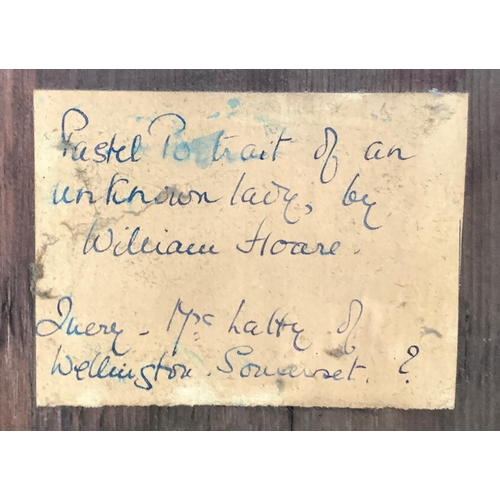 Pastel Portrait of an
unknown lady, by
William Hoare.
Query - of
Wellington. Somerset. ?